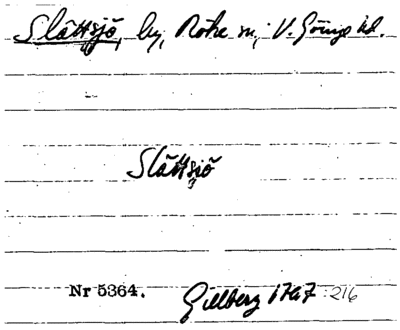 Slättsjö, by, Röke sn, V. Göinge hd.
Slättsjö
Nr 5364. Gillberg 1767 216